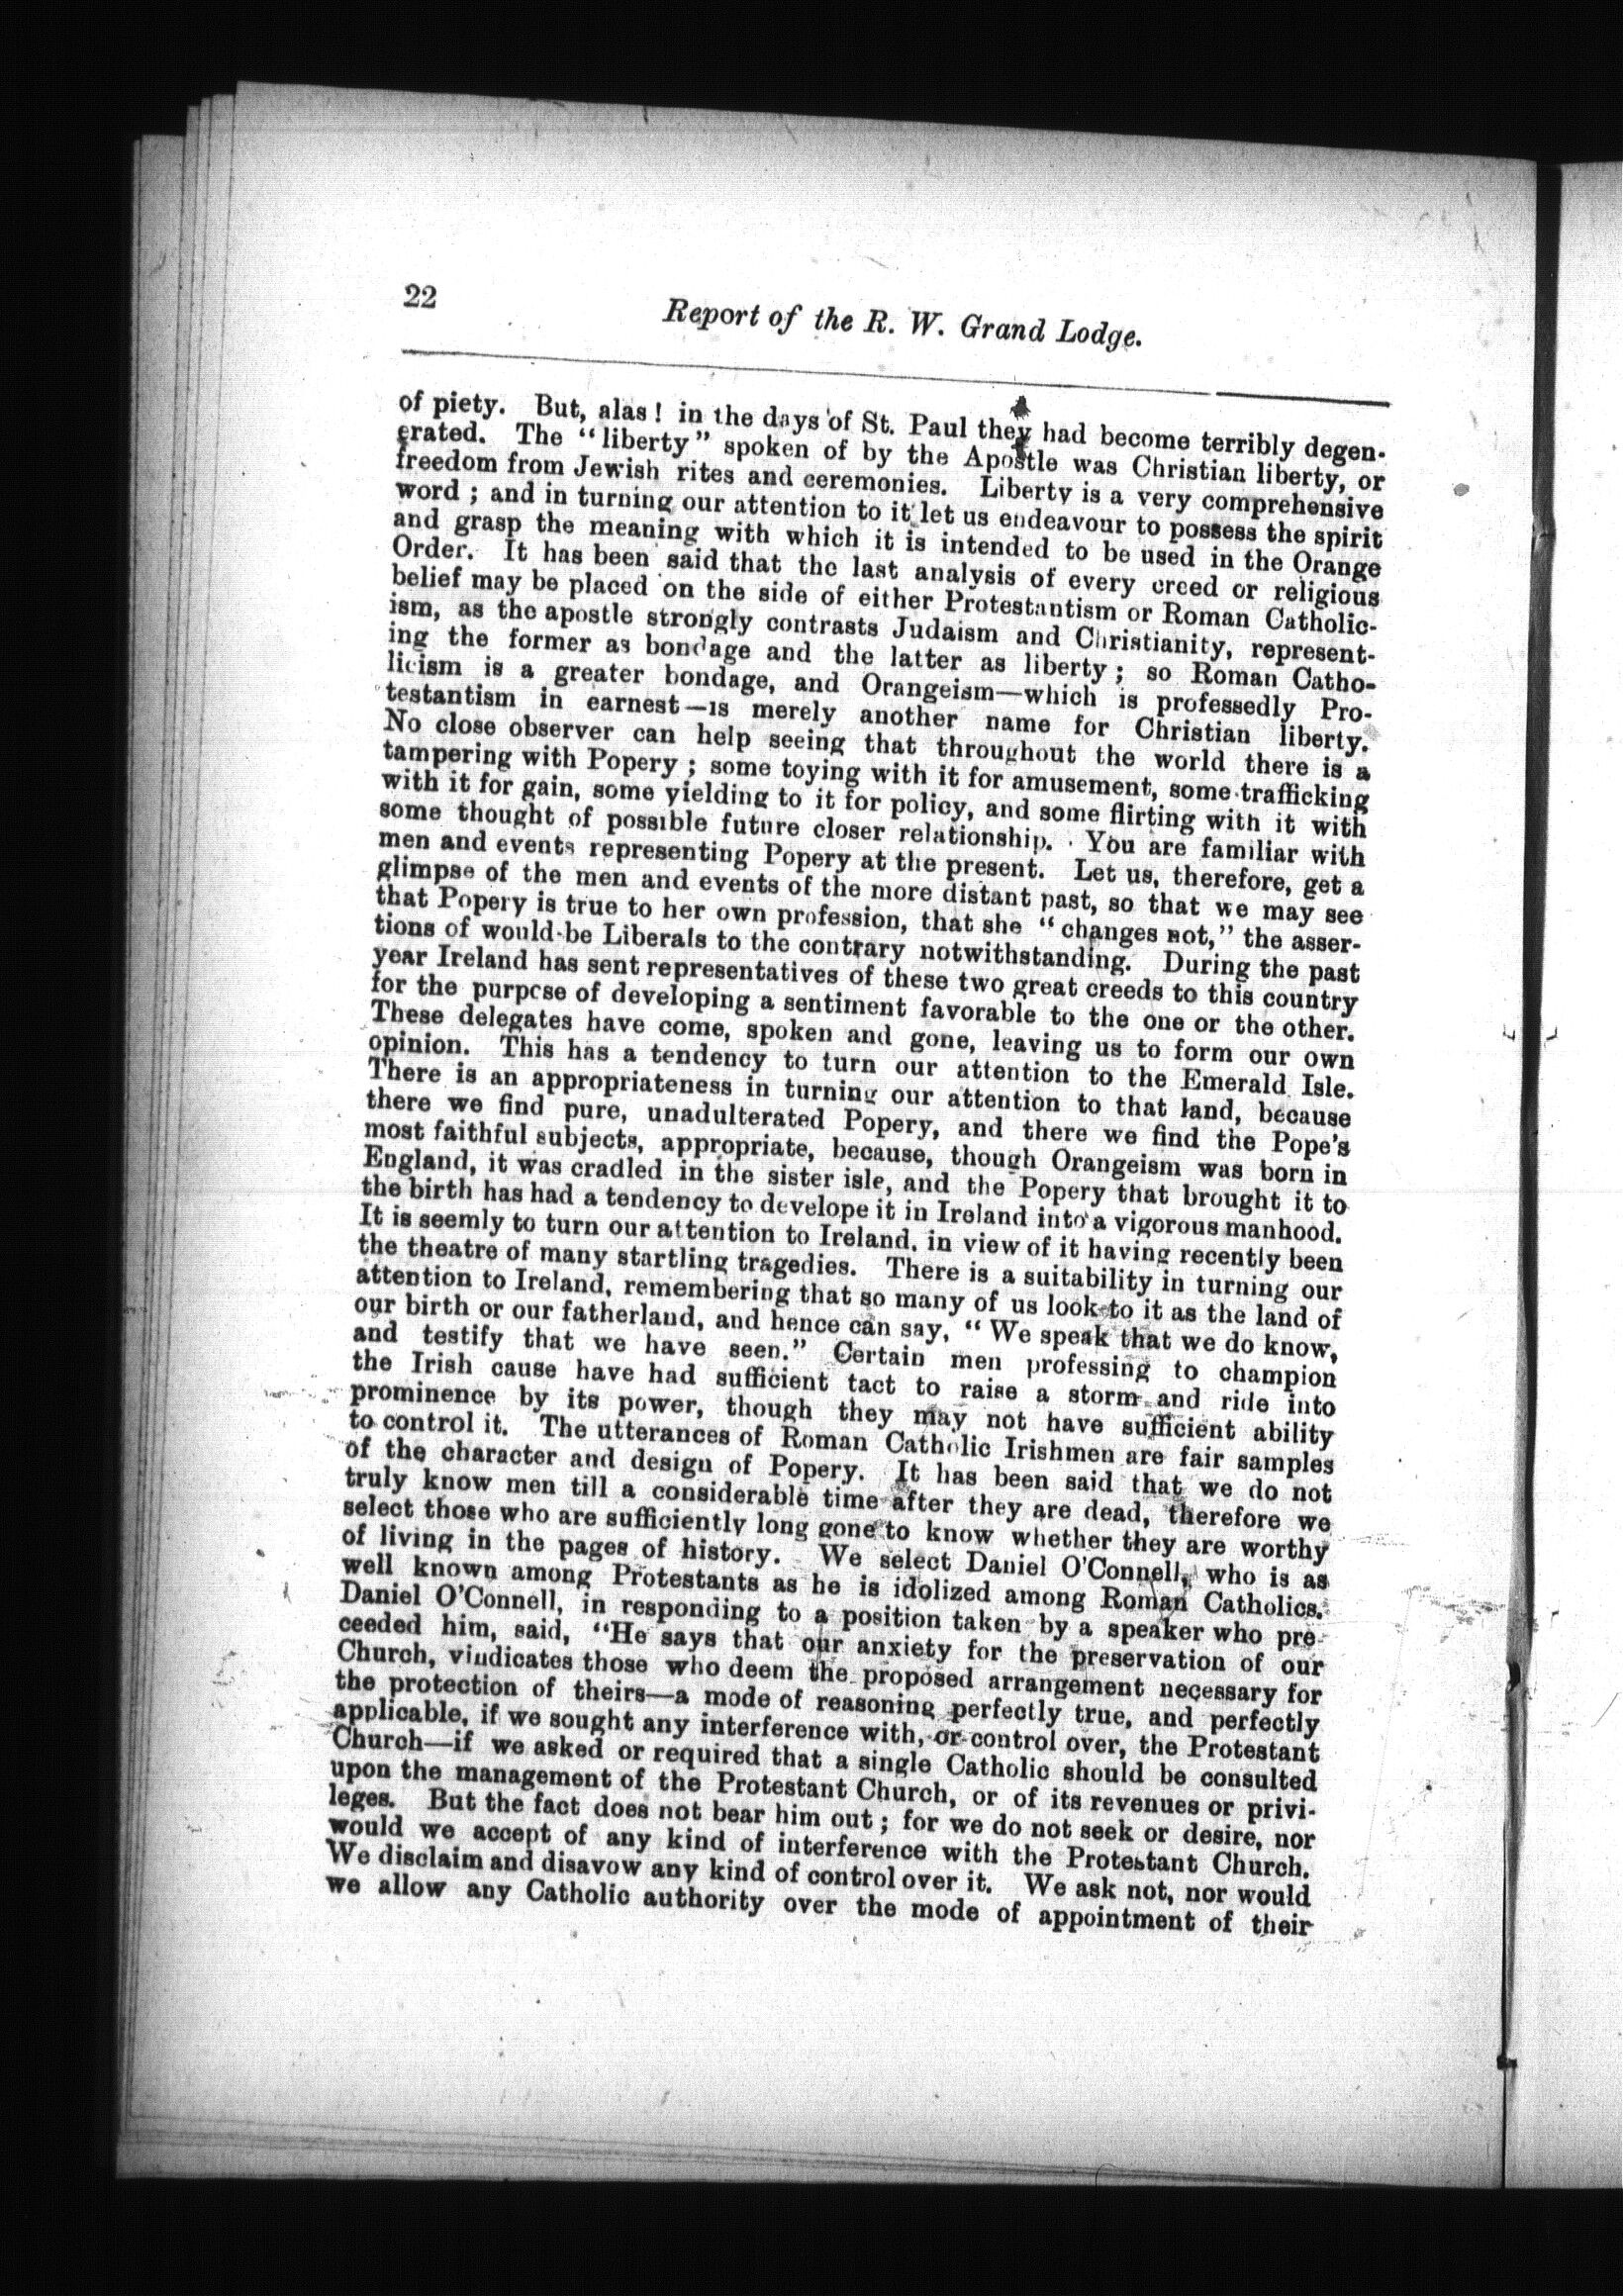 22
Report of the R. W. Grand Lodge.
of piety. But, alas! in the days of St. Paul they had become terribly degen-
erated. The "liberty" spoken of by the Apostle was Christian liberty, or
freedom from Jewish rites and ceremonies. Liberty is a very comprehensive
word; and in turning our attention to it let us endeavour to possess the spirit
and grasp the meaning with which it is intended to be used in the Orange
Order. It has been said that the last analysis of every creed or religious
belief may be placed on the side of either Protestantism or Roman Catholic-
ism, as the apostle strongly contrasts Judaism and Christianity, represent-
ing the former as bondage and the latter as liberty; so Roman Catho-
licism is a greater bondage, and Orangeism—which is professedly Pro-
testantism in earnest—is merely another name for Christian liberty.
No close observer can help seeing that throughout the world there is a
tampering with Popery; some toying with it for amusement, some trafficking
with it for gain, some yielding to it for policy, and some flirting with it with
some thought of possible future closer relationship. You are familiar with
men and events representing Popery at the present. Let us, therefore, get a
glimpse of the men and events of the more distant past, so that we may see
that Popery is true to her own profession, that she "changes not," the asser-
tions of would-be Liberals to the contrary notwithstanding. During the past
year Ireland has sent representatives of these two great creeds to this country
for the purpose of developing a sentiment favorable to the one or the other.
These delegates have come, spoken and gone, leaving us to form our own
opinion. This has a tendency to turn our attention to the Emerald Isle.
There is an appropriateness in turning our attention to that land, because
there we find pure, unadulterated Popery, and there we find the Pope's
most faithful subjects, appropriate, because, though Orangeism was born in
England, it was cradled in the sister isle, and the Popery that brought it to
the birth has had a tendency to develope it in Ireland into a vigorous manhood.
It is seemly to turn our attention to Ireland, in view of it having recently been
the theatre of many startling tragedies. There is a suitability in turning our
attention to Ireland, remembering that so many of us look to it as the land of
our birth or our fatherland, and hence can say, "We speak that we do know,
and testify that we have seen." Certain men professing to champion
the Irish cause have had sufficient tact to raise a storm and ride into
prominence by its power, though they may not have sufficient ability
to control it. The utterances of Roman Catholic Irishmen are fair samples
of the character and design of Popery. It has been said that we do not
truly know men till a considerable time after they are dead, therefore we
select those who are sufficiently long gone to know whether they are worthy
of living in the pages of history. We select Daniel O'Connell, who is as
well known among Protestants as he is idolized among Roman Catholics.
Daniel O'Connell, in responding to a position taken by a speaker who pre-
ceeded him, said, "He says that our anxiety for the preservation of our
Church, vindicates those who deem the proposed arrangement necessary for
the protection of theirs—a mode of reasoning perfectly true, and perfectly
applicable, if we sought any interference with, or control over, the Protestant
Church—if we asked or required that a single Catholic should be consulted
upon the management of the Protestant Church, or of its revenues or privi-
leges. But the fact does not bear him out; for we do not seek or desire, nor
would we accept of any kind of interference with the Protestant Church.
We disclaim and disavow any kind of control over it. We ask not, nor would
we allow any Catholic authority over the mode of appointment of their